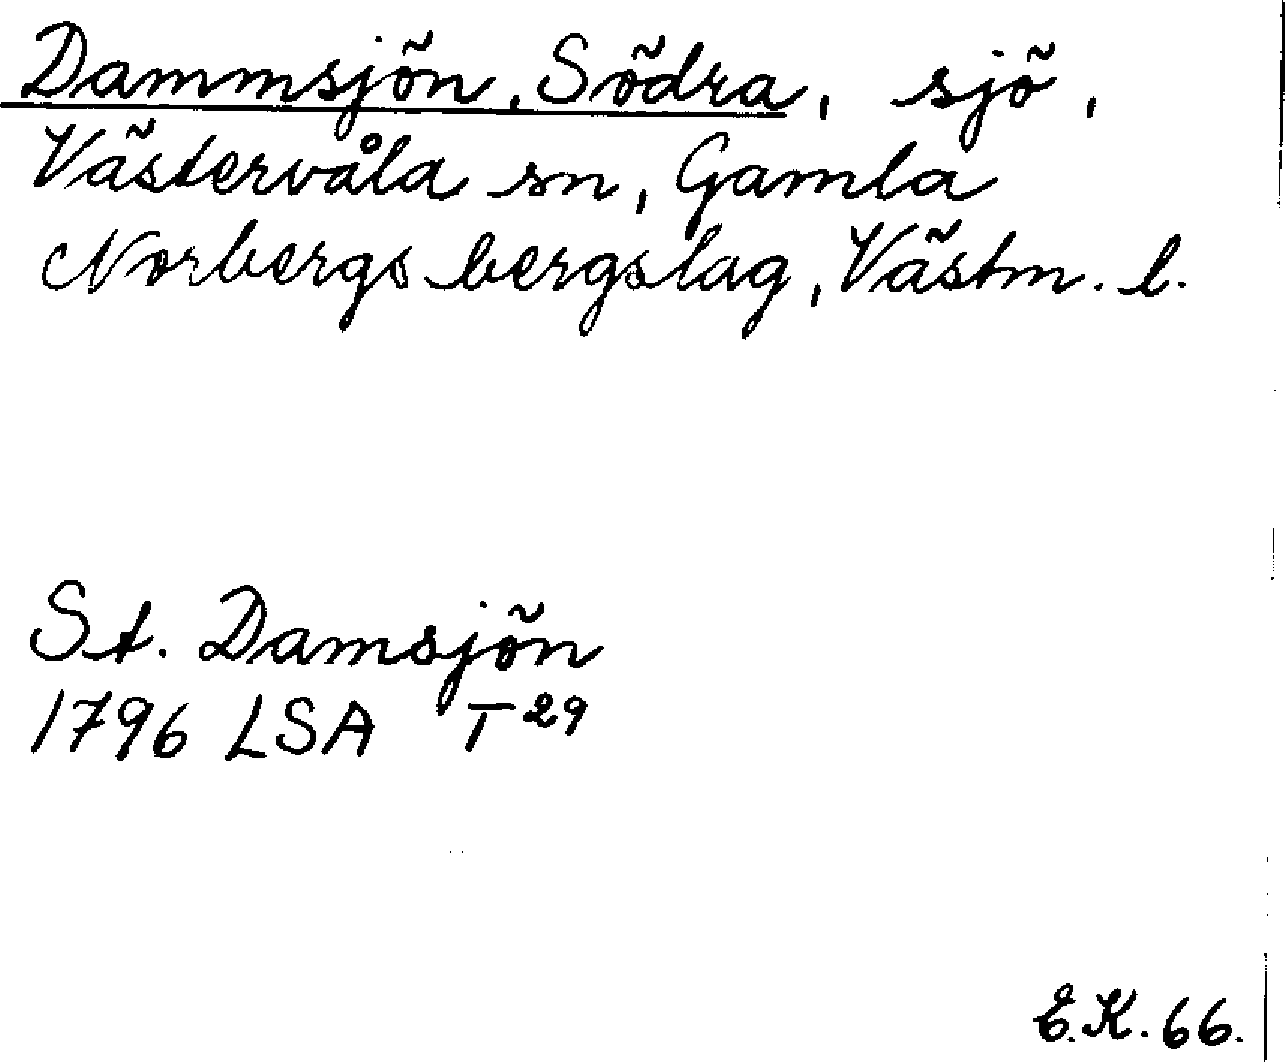 Dammsjön, Södra, sjö,
Västervåla sn, Gamla
Norbergs bergslag, Västm. l.
St. Damsjön
1796 LSA T 29
E.K. 66.